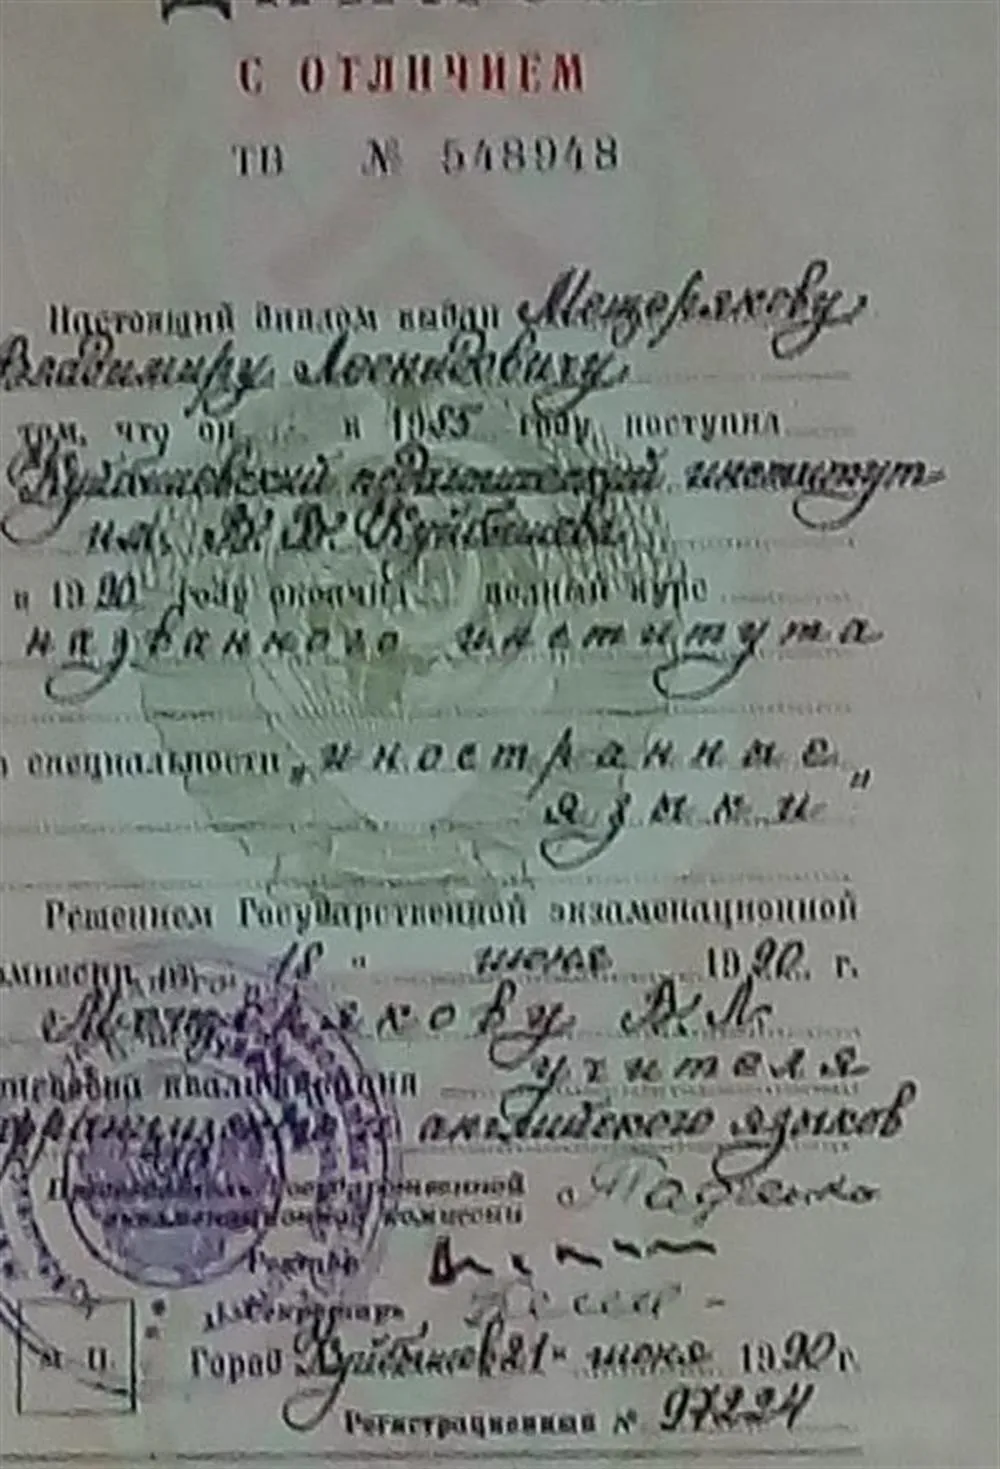 С ОТЛИЧИЕМ
ТВ № 548948
Настоящий диплом выдан Мещерякову
Владимиру Леонидовичу
том, что он в 1985 году поступил
Куйбышевский педагогический институт
им. В. В. Куйбышева
в 1990 году окончил полный курс
названного института
специальности „иностранные
языки"
Решением Государственной экзаменационной
комиссии от „18" июня 1990 г.
Мещерякову В. Л.
присвоена квалификация учителя
французского и английского языков
Председатель Государственной
экзаменационной комиссии
Ректор
Секретарь
Город Куйбышев 21" июня 1990 г.
М. П.
Регистрационный № 97224